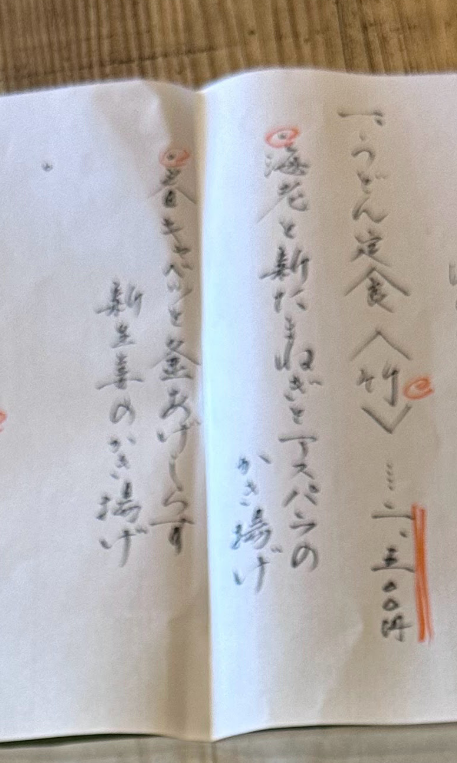 一、うどん定食〈竹〉……二、五〇〇円
海老と新たまねぎとアスパラの
かき揚げ
春キャベツと釜あげしらす
新生姜のかき揚げ